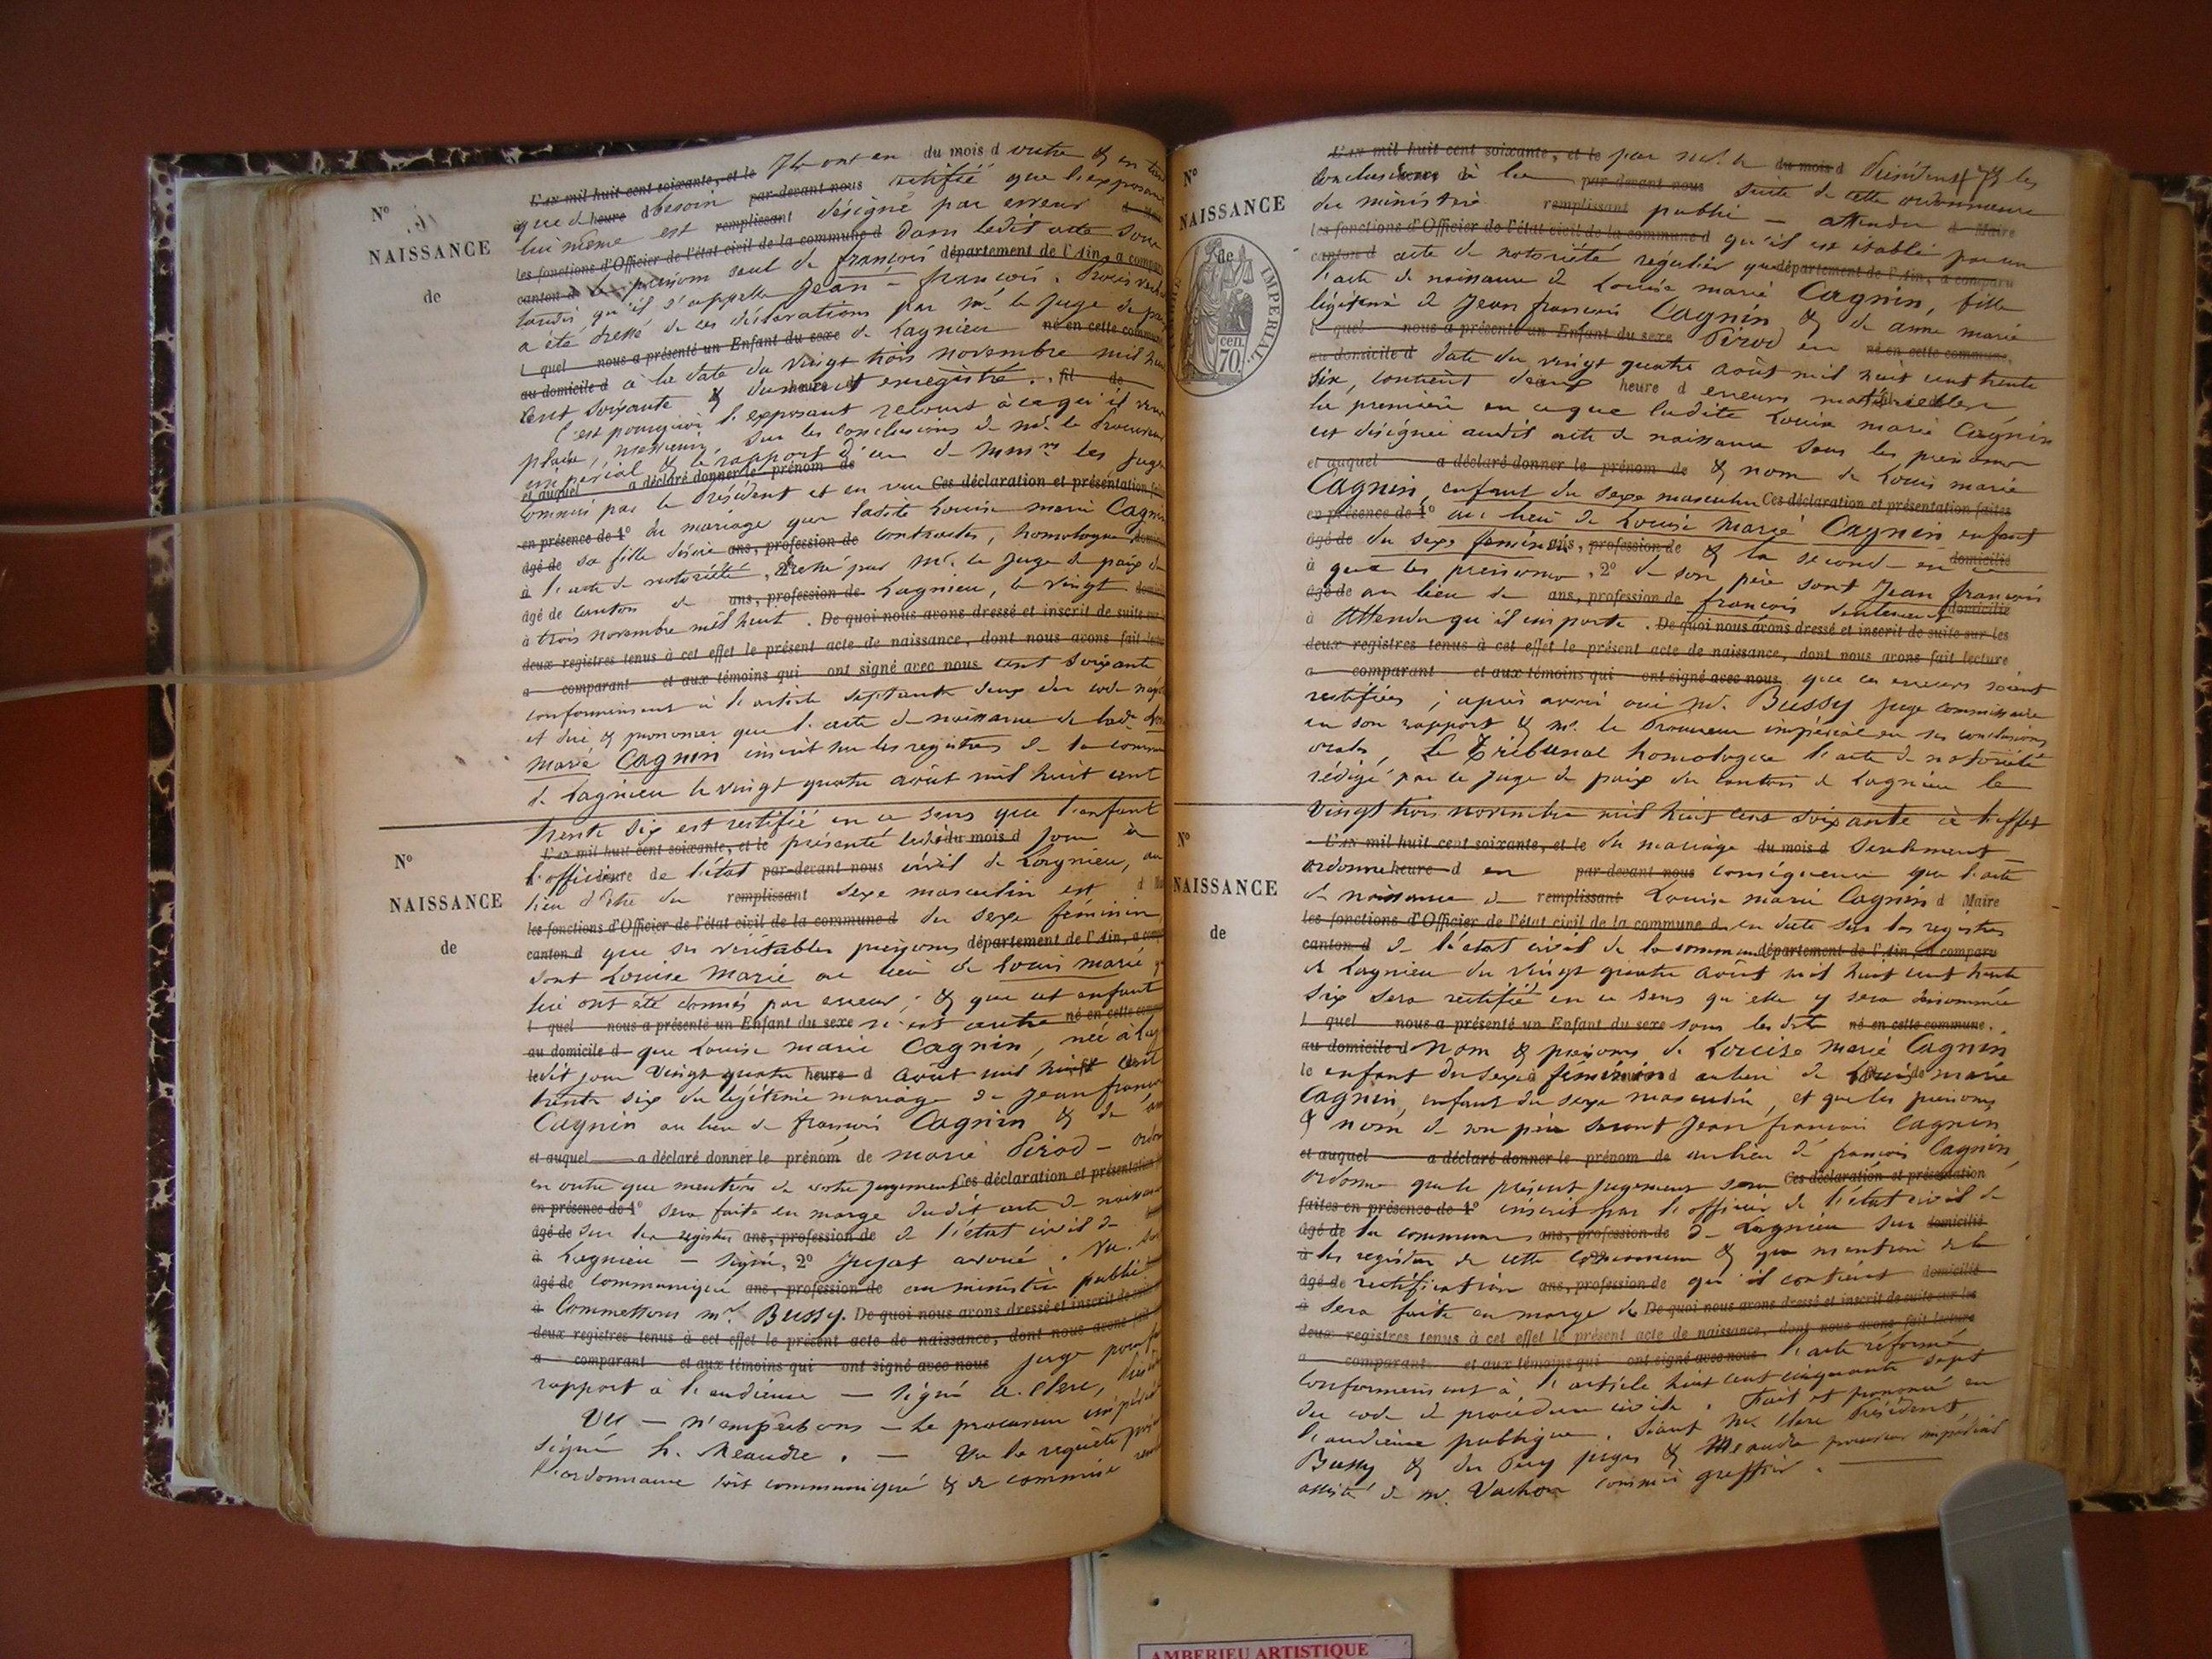 N°
NAISSANCE
de
L'an mil huit cent soixante, et le Ils ont en du mois d outre & en tant
que d heure d besoin par-devant nous rectifié que l'exposant
lui même est remplissant désigné par erreur
les fonctions d'Officier de l'état civil de la commune d dans ledit acte sous
canton d le prénom seul de françois département de l'Ain, a comparu
tandis qu'il s'appelle Jean-françois. Procès verbal
a été dressé de ces déclarations par mr. le Juge de paix
l quel nous a présenté un Enfant du sexe de Lagnieu né en cette commune
au domicile d à la date du vingt trois novembre mil huit
cent soixante & dument enregistré. fil de
C'est pourquoi l'exposant recourt à ce qu'il vous
plaise, messieurs, sur les conclusions de mr. le Procureur
impérial & le rapport d'un de Mmrs les Juges
et auquel a déclaré donner le prénom de
commis par le Président et en vue Ces déclaration et présentation faites
en présence de 1° du mariage que ladite Louise marie Cagnin
âgé de sa fille désire ans, profession de contracter, homologuer
à l'acte de notoriété, dressé par mr. le Juge de paix du
âgé de canton de ans, profession de Lagnieu, le vingt
à trois novembre mil huit. De quoi nous avons dressé et inscrit de suite sur les
deux registres tenus à cet effet le présent acte de naissance, dont nous avons fait lecture
a comparant et aux témoins qui ont signé avec nous cent soixante
conformément à l'article septante deux du code
et dire & prononcer que l'acte de naissance de lade
marie Cagnin inscrit sur les registres de la commune
de Lagnieu le vingt quatre août mil huit cent
trente six est rectifié en ce sens que l'enfant
N°
NAISSANCE
de
L'an mil huit cent soixante, et le présenté ledit du mois d jour à
l'officier heure de l'état par-devant nous civil de Lagnieu, au
lieu d'être du remplissant sexe masculin est
les fonctions d'Officier de l'état civil de la commune d du sexe féminin,
canton d que ses véritables prénoms département de l'Ain, a comparu
sont Louise Marie au lieu de Louis marie
lui ont été donnés par erreur; & que cet enfant
l quel nous a présenté un Enfant du sexe n'est autre né en cette commune
au domicile d que Louise marie Cagnin, née à
ledit jour vingt quatre heure d août mil huit cent
trente six du légitime mariage de Jean françois
Cagnin au lieu de françois Cagnin & de
et auquel a déclaré donner le prénom de marie Pirod -
en outre que mention de votre jugement Ces déclaration et présentation
en présence de 1° sera faite en marge dudit acte de naissance
âgé de sur les registres ans, profession de de l'état civil de
à Lagnieu - signé, 2° avoué. Vu.
âgé de communiqué ans, profession de au ministère public
à Commettons mr. Bussy. De quoi nous avons dressé et inscrit de suite
deux registres tenus à cet effet le présent acte de naissance, dont nous avons fait
a comparant et aux témoins qui ont signé avec nous juge pour
rapport à l'audience - signé a. Clerc,
Vu - n'empêchons - Le procureur impérial
signé h. Meaudre. - Vu la requête
l'ordonnance soit communiqué & de commise
N°
NAISSANCE
de
IMPERIAL
70 cen.
L'an mil huit cent soixante, et le par mr. le du mois d Président & les
conclusions heure à la par-devant nous suite de cette ordonnance
du ministère remplissant public - attendu d Maire
les fonctions d'Officier de l'état civil de la commune d qu'il est établi par un
canton d acte de notoriété régulier que département de l'Ain, a comparu
l'acte de naissance de Louise marie Cagnin, fille
légitime de Jean françois Cagnin & de anne marie
l quel nous a présenté un Enfant du sexe Pirod en né en cette commune,
au domicile d date du vingt quatre août mil huit cent trente
six, contient deux heure d erreurs matérielles
la première en ce que ladite Louise marie Cagnin
est désignée audit acte de naissance sous les prénoms
et auquel a déclaré donner le prénom de & nom de Louis marie
Cagnin, enfant du sexe masculin Ces déclaration et présentation faites
en présence de 1° au lieu de Louise marie Cagnin enfant
âgé de du sexe féminin ans, profession de & la seconde en ce domicilié
à que les prénoms, 2° de son père sont Jean françois
âgé de au lieu de ans, profession de françois seulement domicilié
à Attendu qu'il importe. De quoi nous avons dressé et inscrit de suite sur les
deux registres tenus à cet effet le présent acte de naissance, dont nous avons fait lecture
a comparant et aux témoins qui ont signé avec nous que ces erreurs soient
rectifiées; après avoir oui mr. Bussy juge commissaire
en son rapport & mr. le Procureur impérial en ses conclusions
orales, Le Tribunal homologue l'acte de notoriété
rédigé par le Juge de paix du canton de Lagnieu le
vingt trois novembre mil huit cent soixante à l'effet
N°
NAISSANCE
de
L'an mil huit cent soixante, et le du mariage du mois d seulement
ordonne heure d en par-devant nous conséquence que l'acte
de naissance de remplissant Louise marie Cagnin d Maire
les fonctions d'Officier de l'état civil de la commune d en date sur les registres
canton d de l'état civil de la commune département de l'Ain, a comparu
de Lagnieu du vingt quatre août mil huit cent trente
six sera rectifié en ce sens qu'elle y sera dénommée
l quel nous a présenté un Enfant du sexe sous les dits né en cette commune.
au domicile d nom & prénoms de Louise marie Cagnin
le enfant du sexe féminin heure d au lieu de Louis marie
Cagnin, enfant du sexe masculin, et que les prénoms
& nom de son père seront Jean françois Cagnin
et auquel a déclaré donner le prénom de au lieu de françois Cagnin,
ordonne que le présent jugement sera Ces déclaration et présentation
faites en présence de 1° inscrit par l'officier de l'état civil de
âgé de la commune ans, profession de de Lagnieu sur domicilié
à les registres de cette commune & que mention de la
âgé de rectification ans, profession de qu'il contient domicilié
à sera faite en marge de De quoi nous avons dressé et inscrit de suite sur les
deux registres tenus à cet effet le présent acte de naissance, dont nous avons fait lecture
a comparant et aux témoins qui ont signé avec nous l'acte réformé
conformément à l'article huit cent cinquante sept
du code de procédure civile. Fait et prononcé en
l'audience publique. Séant mr. Clerc Président
Bussy & du Puy juges & Meaudre procureur impérial
assisté de mr. Vachon commis greffier.
AMBERIEU ARTISTIQUE